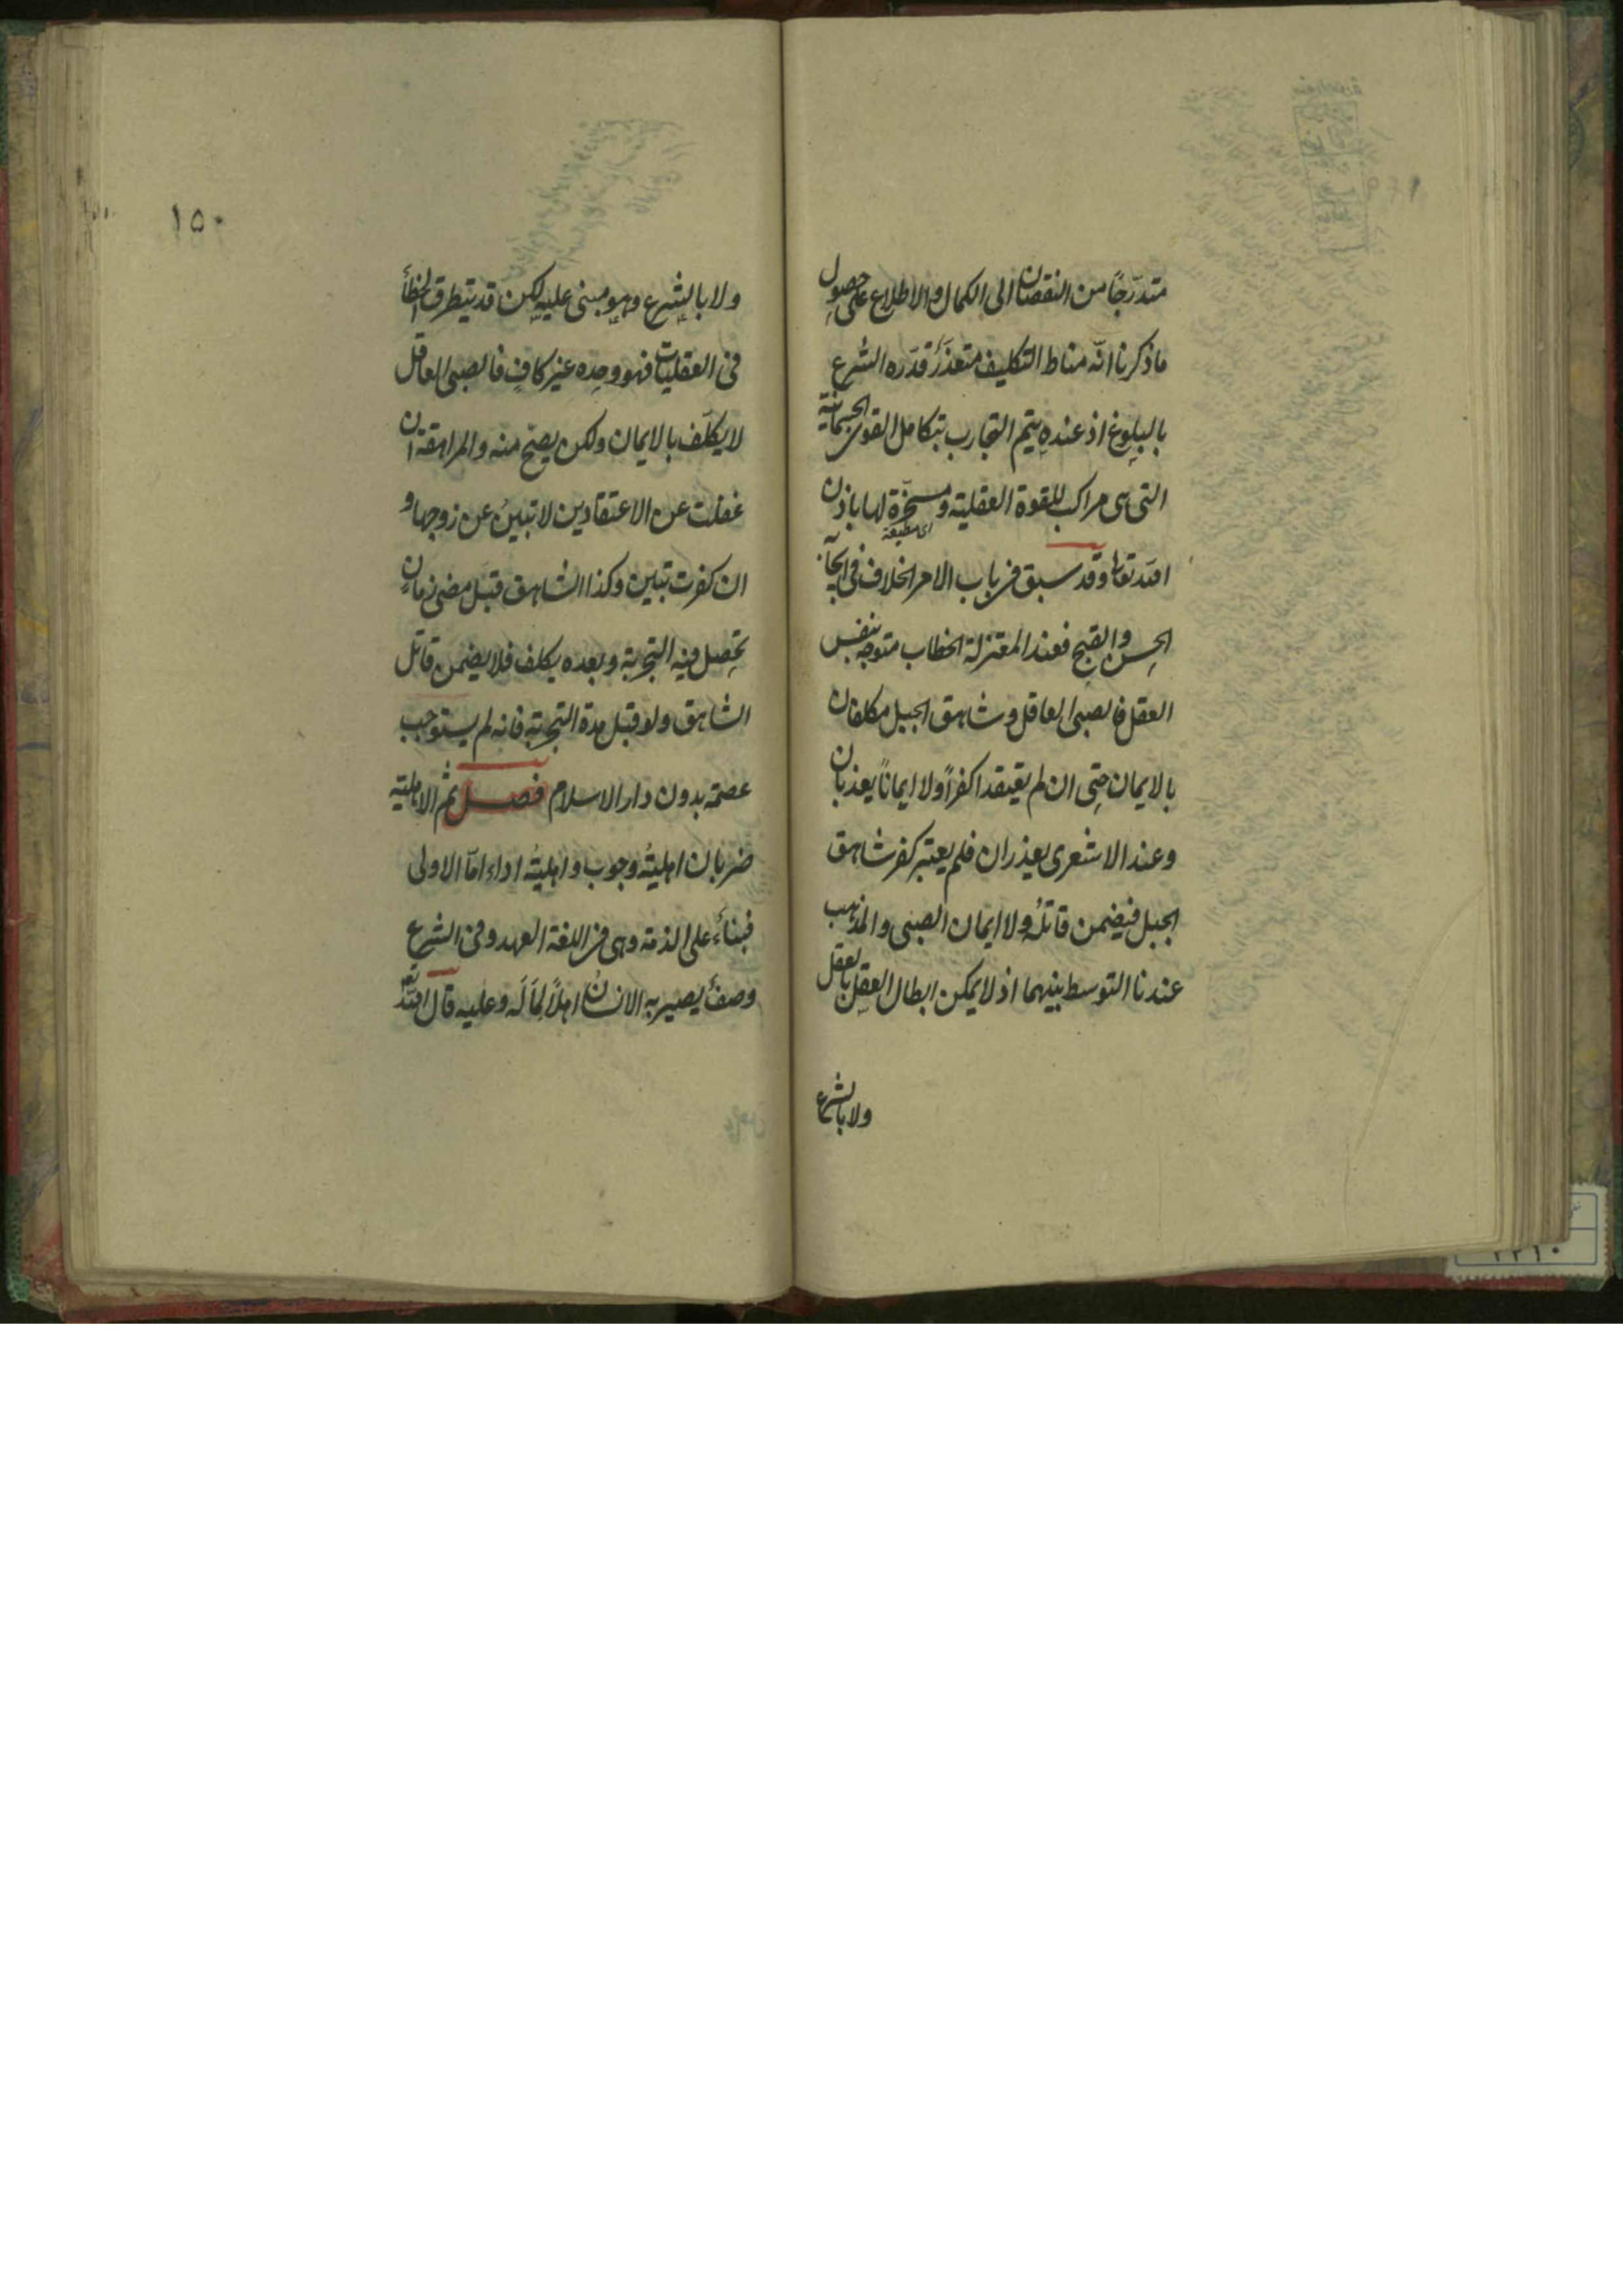 متدرّجًا من النقصان الى الكمال والاطلاع على حصول
ما ذكرنا انّه مناط التكليف متعذّر قدّره الشرع
بالبلوغ اذ عنده يتم التجارب بتكامل القوى الجسمانية
التى هى مراكب للقوة العقلية ومسخّرة لها باذن
اى مطيعة
الله تعالى وقد سبق فى باب الامر الخلاف فى ايجاب
الحسن والقبح فعند المعتزلة الخطاب متوجه بنفس
العقل فالصبى العاقل وشاهق الجبل مكلفان
بالايمان حتى ان لم يعتقدا كفرًا ولا ايمانًا يعذبان
وعند الاشعرى يعذران فلم يعتبر كفر شاهق
الجبل فيضمن قاتله ولا ايمان الصبى والمذهب
عندنا التوسط بينهما اذ لا يمكن ابطال العقل بالعقل
ولا بالشرع
١٥٠
ولا بالشرع وهو مبنى عليه لكن قد يتطرق الخطأ
فى العقليات فهو وحده غير كافٍ فالصبى العاقل
لا يكلّف بالايمان ولكن يصحّ منه والمراهقة ان
غفلت عن الاعتقادين لا تبين عن زوجها و
ان كفرت تبين وكذا الشاهق قبل مضى زمان
تحصل فيه التجربة وبعده يكلف فلا يضمن قاتل
الشاهق ولو قبل مدة التجربة فانه لم يستوجب
عصمة بدون دار الاسلام فصل ثم الاهلية
ضربان اهلية وجوب واهلية اداء امّا الاولى
فبناءً على الذمة وهى فى اللغة العهد وفى الشرع
وصف يصير به الانسان اهلًا لما له وعليه قال الله تع
٢٢١٠